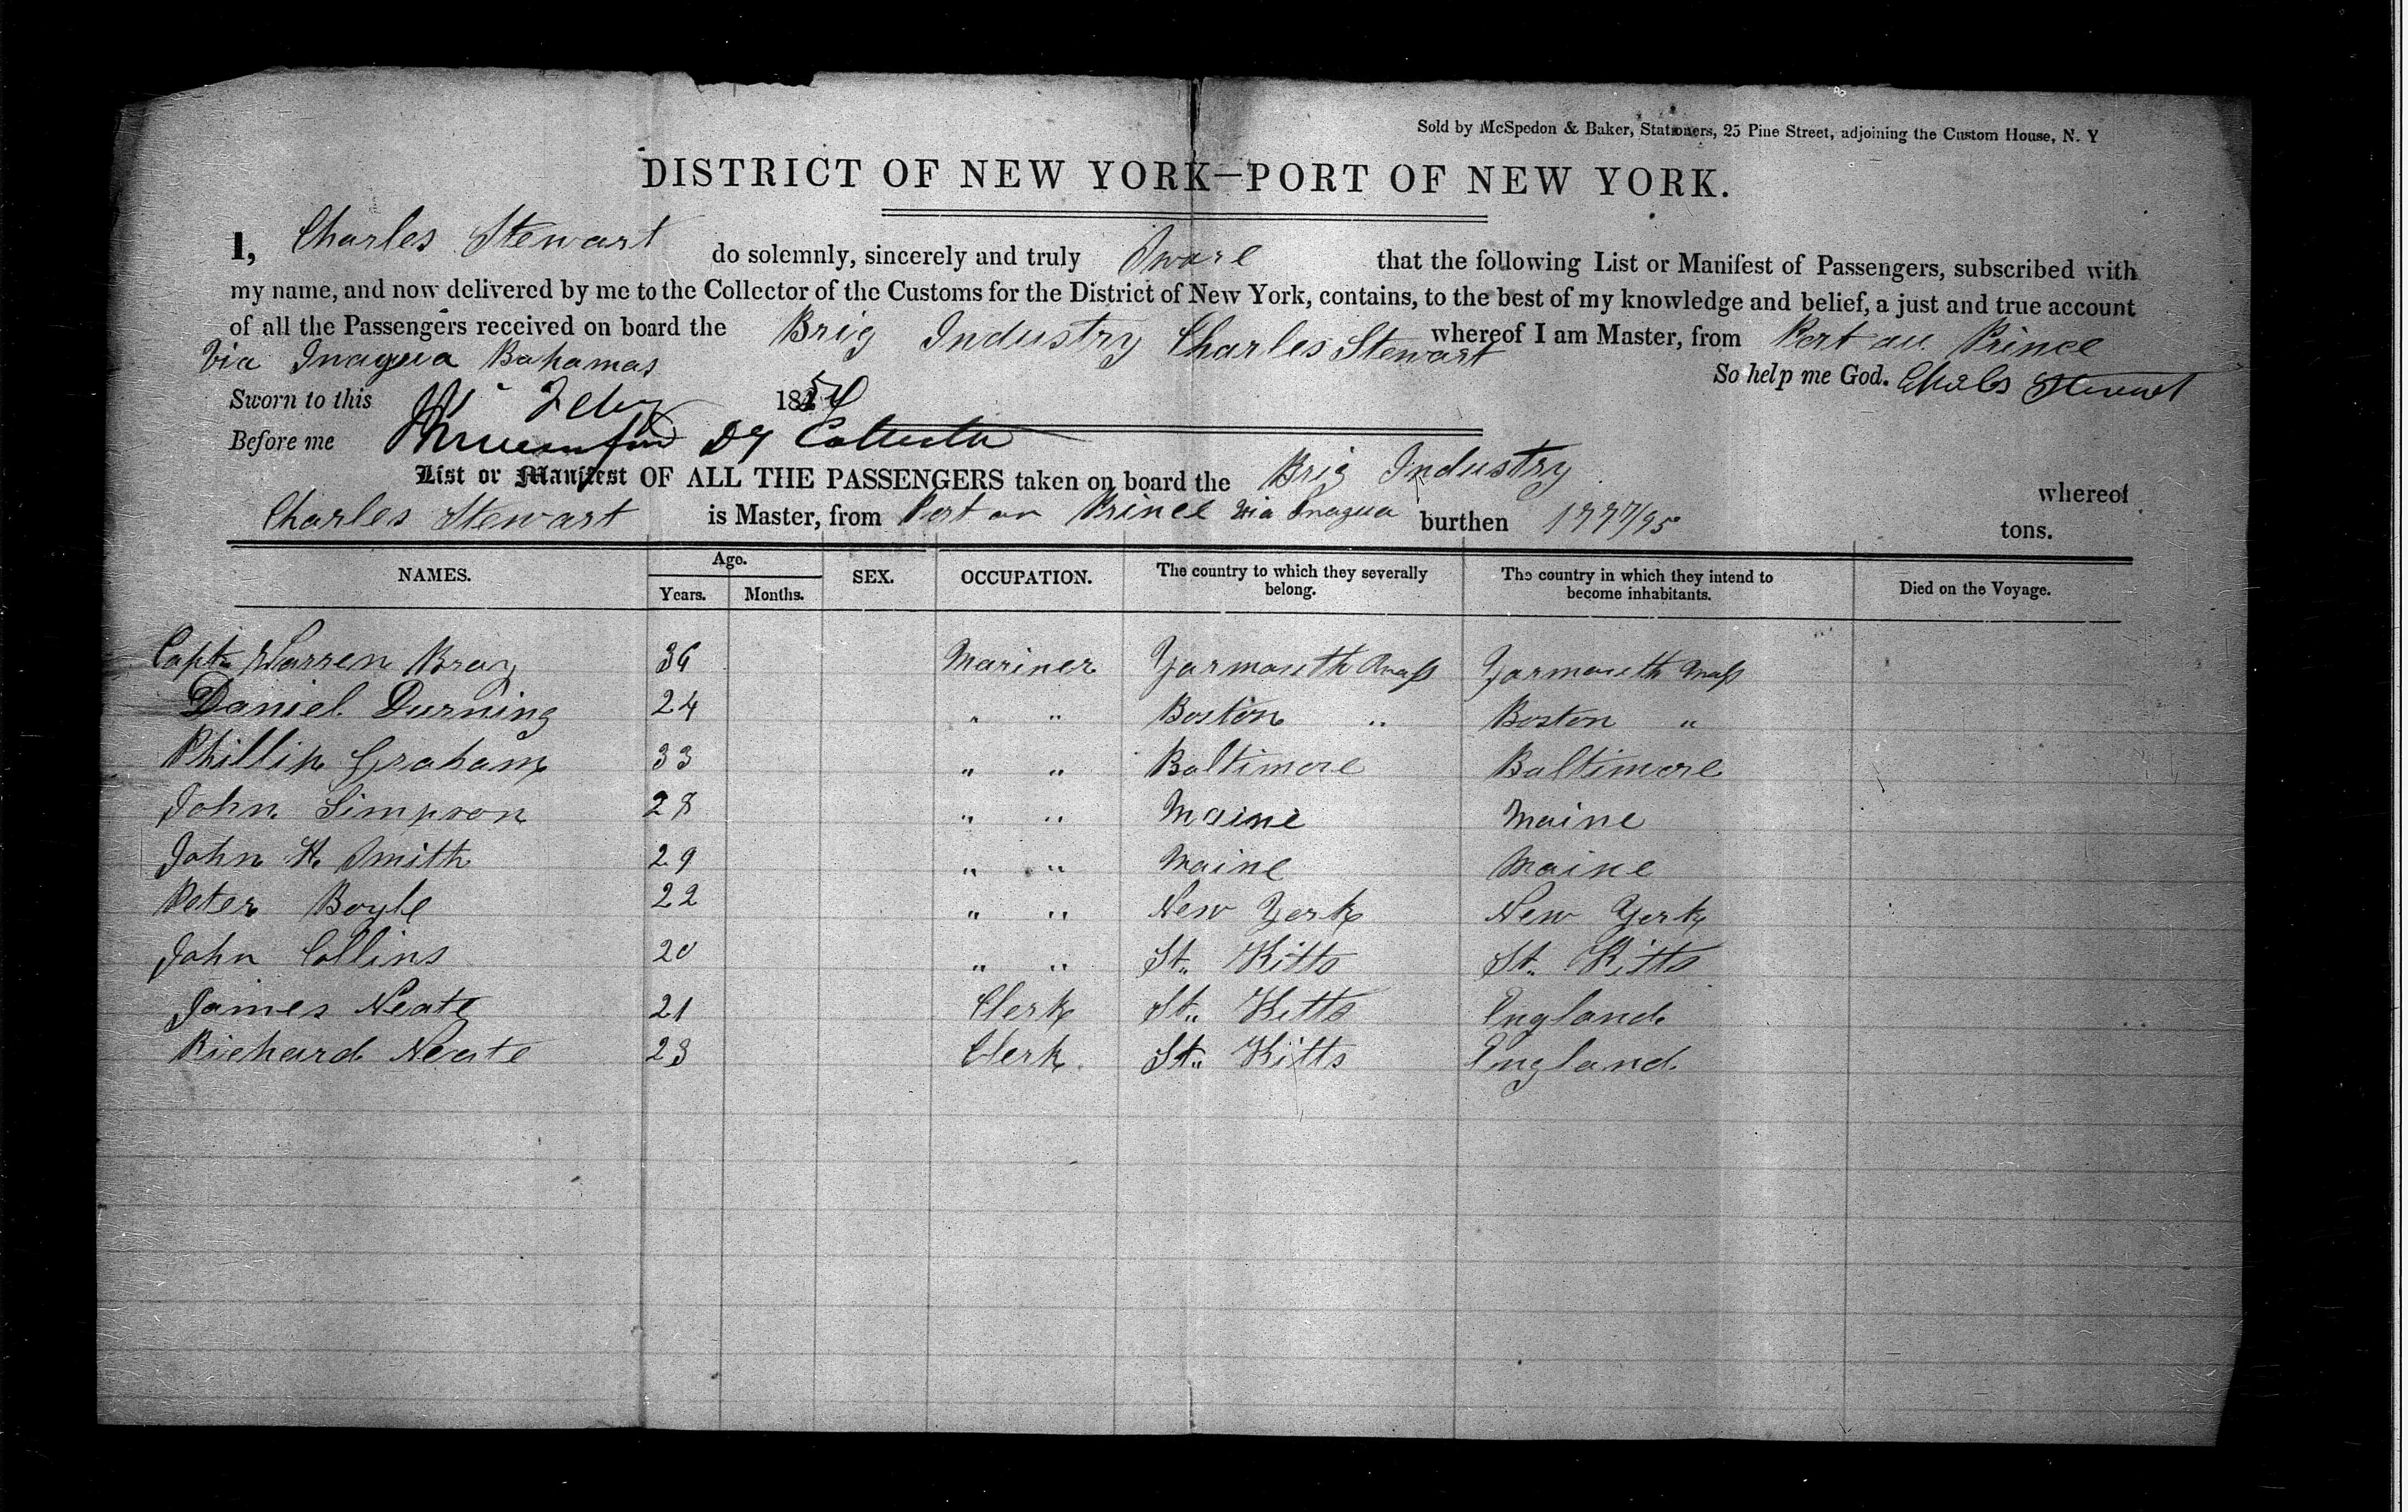 Sold by McSpedon & Baker, Stationers, 25 Pine Street, adjoining the Custom House, N. Y
DISTRICT OF NEW YORK—PORT OF NEW YORK.
I, Charles Stewart do solemnly, sincerely and truly Sware that the following List or Manifest of Passengers, subscribed with
my name, and now delivered by me to the Collector of the Customs for the District of New York, contains, to the best of my knowledge and belief, a just and true account
of all the Passengers received on board the Brig Industry Charles Stewart whereof I am Master, from Port au Prince
Via Inagua Bahamas
So help me God. Charles Stewart
Sworn to this Feby 1854
Before me Dy Collector
List or Manifest OF ALL THE PASSENGERS taken on board the Brig Industry whereof
Charles Stewart is Master, from Port au Prince via Inagua burthen tons.
NAMES. Age. Years. Months. SEX. OCCUPATION. The country to which they severally belong. The country in which they intend to become inhabitants. Died on the Voyage.
Capt. Warren Bray 36 Mariner Yarmouth Mass Yarmouth Mass
Daniel Durning 24 " " Boston " Boston "
Phillip Graham 33 " " Baltimore Baltimore
John Simpson 28 " " Maine Maine
John H. Smith 29 " " Maine Maine
Peter Boyle 22 " " New York New York
John Collins 20 " " St. Kitts St. Kitts
James Neate 21 Clerk St. Kitts England
Richard Neate 23 Clerk St. Kitts England